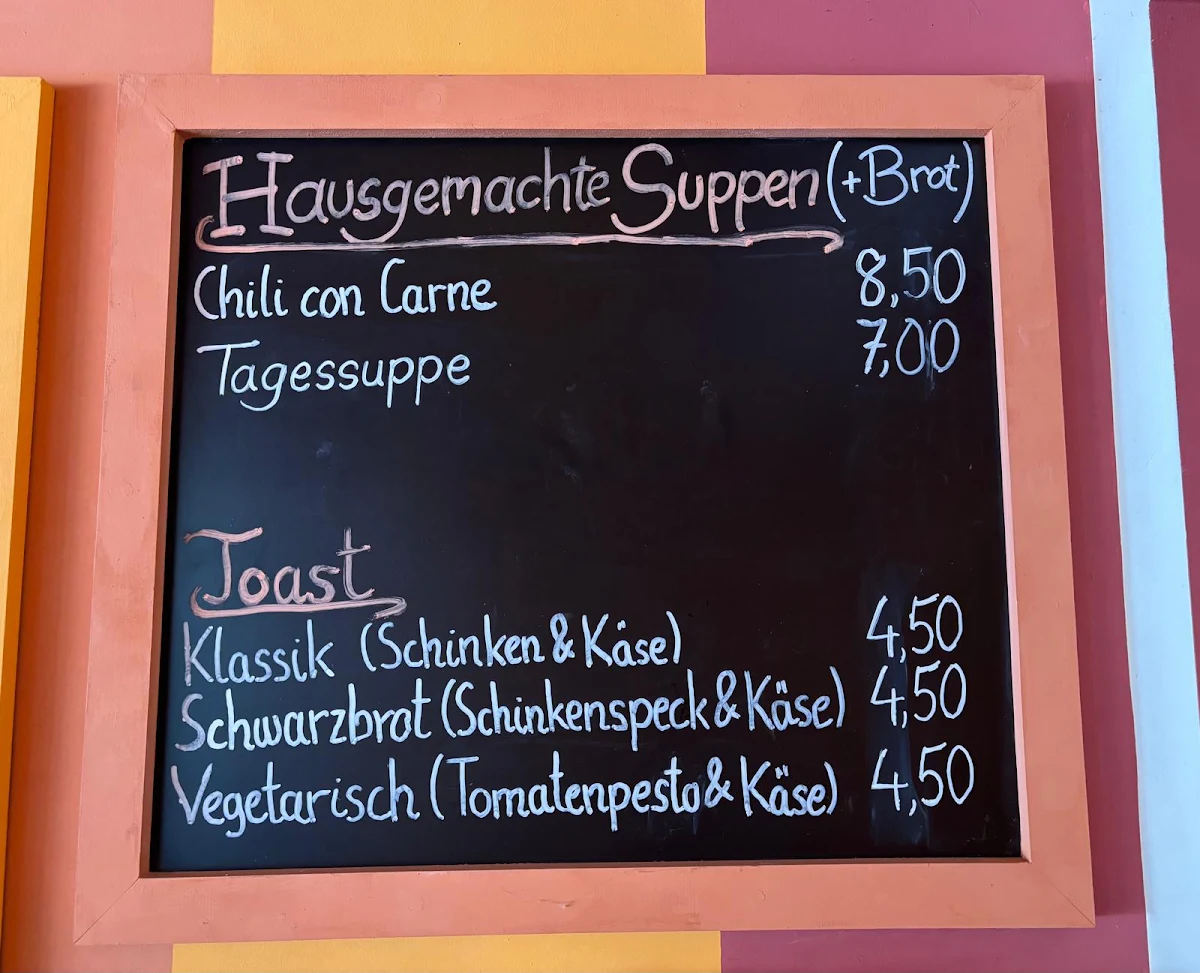 Hausgemachte Suppen (+Brot)
Chili con Carne 8,50
Tagessuppe 7,00
Toast
Klassik (Schinken & Käse) 4,50
Schwarzbrot (Schinkenspeck & Käse) 4,50
Vegetarisch (Tomatenpesto & Käse) 4,50